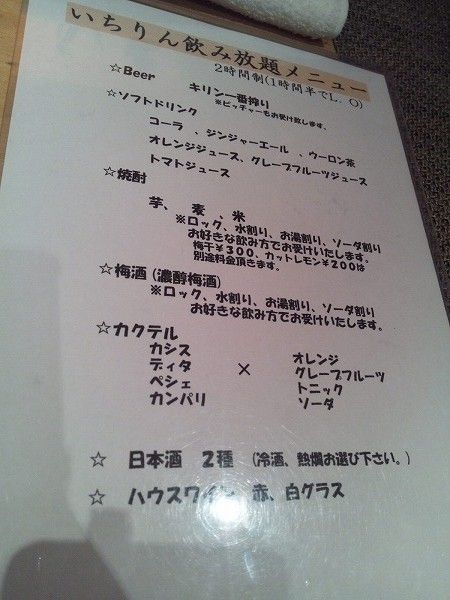 いちりん飲み放題メニュー
2時間制(1時間半でL.O)
☆Beer キリン一番搾り
※ピッチャーもお受け致します。
☆ソフトドリンク
コーラ 、ジンジャーエール 、ウーロン茶
オレンジジュース、グレープフルーツジュース
トマトジュース
☆焼酎
芋、 麦 、米
※ロック、水割り、お湯割り、ソーダ割り
お好きな飲み方でお受けいたします。
梅干¥300、カットレモン¥200は
別途料金頂きます。
☆梅酒(濃醇梅酒)
※ロック、水割り、お湯割り、ソーダ割り
お好きな飲み方でお受けいたします。
☆カクテル
カシス オレンジ
ディタ × グレープフルーツ
ペシェ トニック
カンパリ ソーダ
☆ 日本酒 2種 (冷酒、熱燗お選び下さい。)
☆ ハウスワイン 赤、白グラス